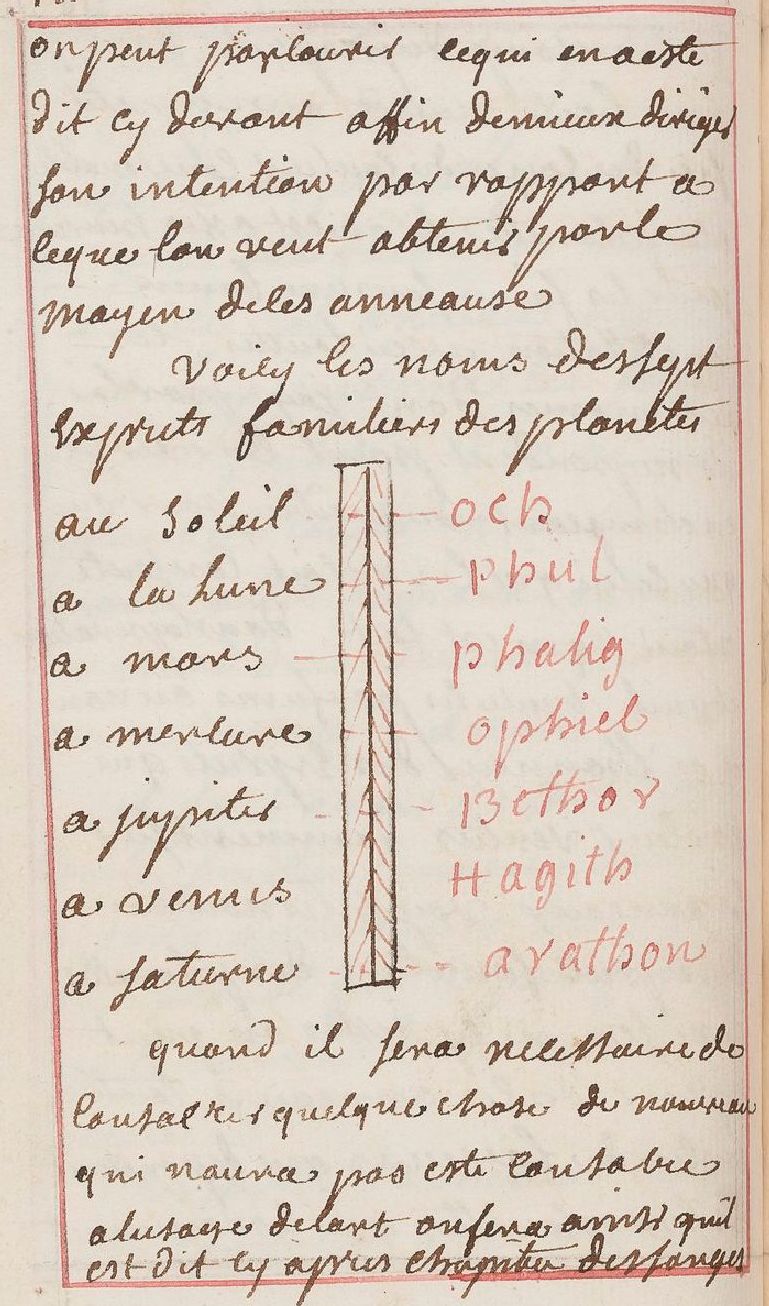 on peut parcouris ce qui en aeste
dit cy devant affin de mieux diriges
son intention par rapport a
ce que lon veut obtenir par le
moyen de ces anneause
voicy les noms des sept
Exprits familiers des planetes
au Soleil och
a la lune phul
a mars phalig
a mercure ophiel
a jupiter Bethor
a venus Hagith
a saturne arathon
quand il sera necessaire de
consacrer quelque chose de nouveau
qui naura pas este consacre
a lusage de lart on fera ainsi quil
est dit cy apres chapitre des